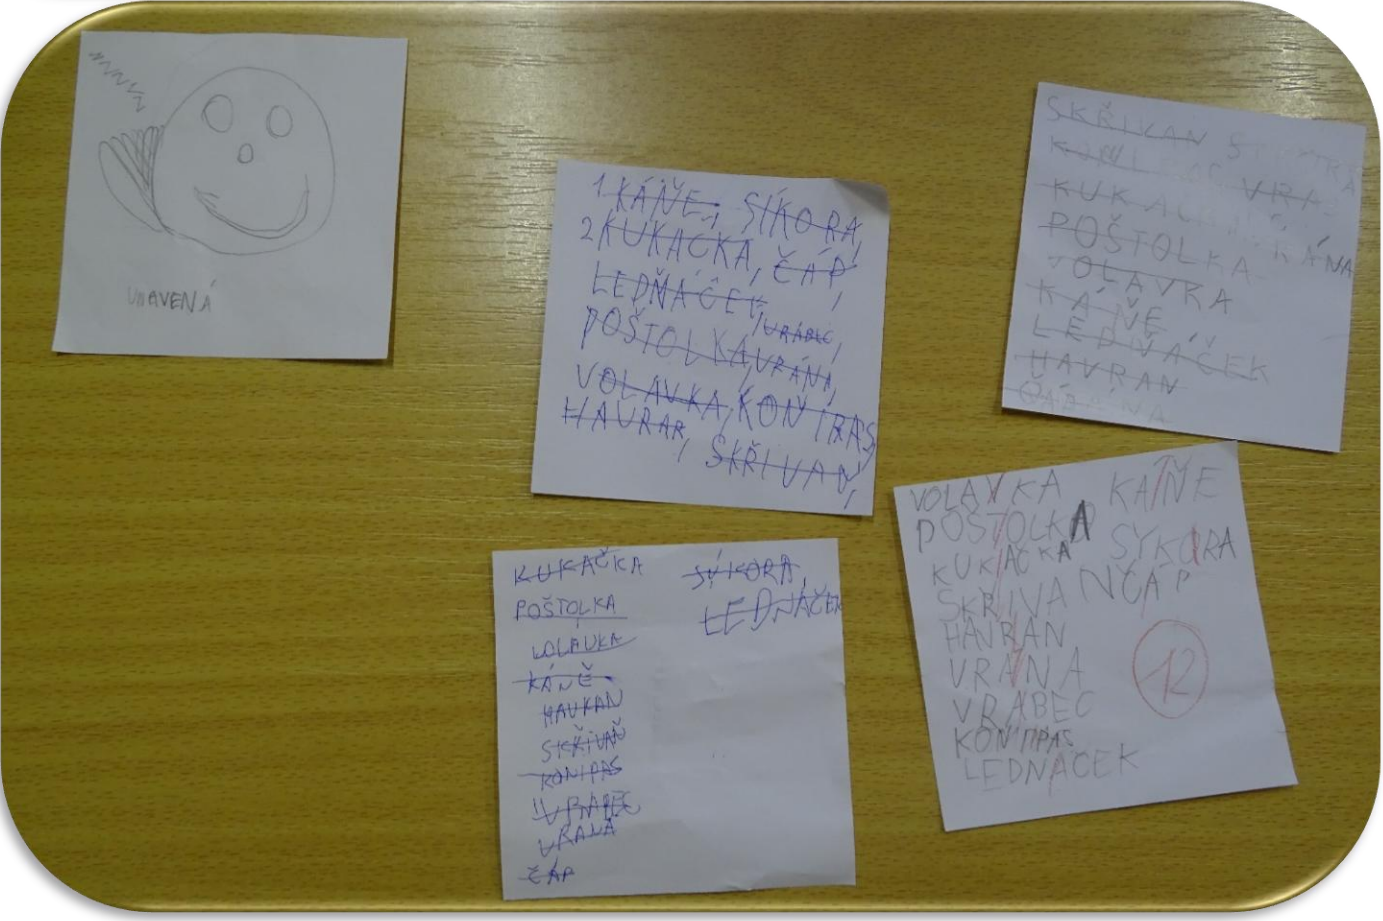 UNAVENÁ
1. KÁŇE, SÍKORA,
2 KUKAČKA, ČÁP,
LEDŇÁČEK,
VRÁBEC,
POŠTOLKA, VRÁNA,
VOLAVKA, KONÍPAS,
HAVRAR, SKŘIVAN,
SKŘIVAN
KUKAČKA
POŠTOLKA
VOLAVRA
KÁŇE
LEDŇÁČEK
HAVRAN
KUKAČKA SÝKORA,
POŠTOLKA LEDNÁČEK
VOLAVKA
KÁNĚ
HAVRAN
SKŘIVAŇ
KONIPAS
VRABEC
VRANÁ
ČÁP
VOLAVKA KÁŇE
POŠTOLKA SÝKORA
KUKAČKA
SKŘIVAN ČÁP
HAVRAN
VRÁNA
VRABEC
KONIPAS
LEDNÁČEK
12